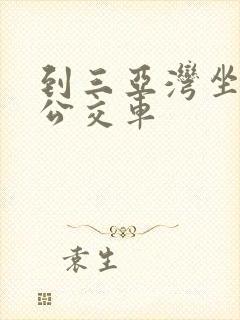 到三亞灣坐
公交車
袁生